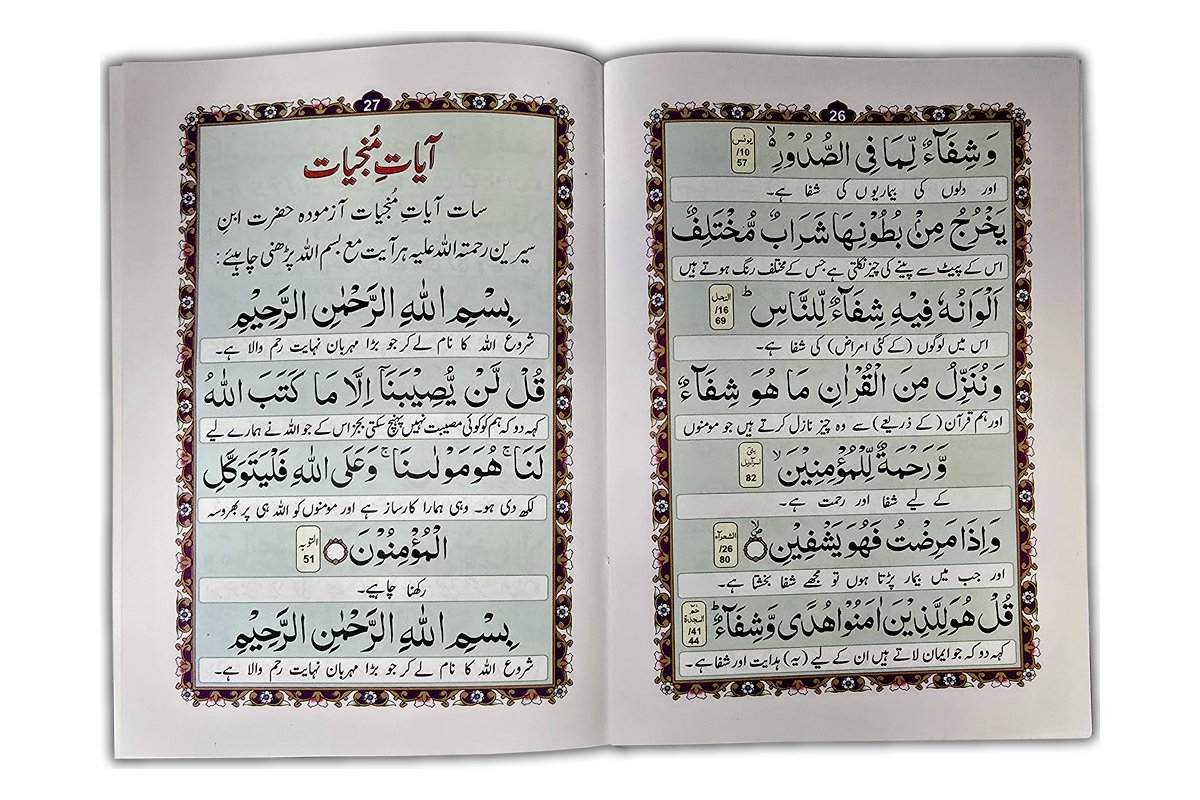 26
وَ شِفَآءٌ لِّمَا فِی الصُّدُوْرِ ۙ۬ یونس 10/ 57
اور دلوں کی بیماریوں کی شفا ہے۔
یَخْرُجُ مِنْۢ بُطُوْنِهَا شَرَابٌ مُّخْتَلِفٌ
اس کے پیٹ سے پینے کی چیز نکلتی ہے جس کے مختلف رنگ ہوتے ہیں
اَلْوَانُهٗ فِیْهِ شِفَآءٌ لِّلنَّاسِ ؕ النحل 16/ 69
اس میں لوگوں (کے کئی امراض) کی شفا ہے۔
وَ نُنَزِّلُ مِنَ الْقُرْاٰنِ مَا هُوَ شِفَآءٌ
اور ہم قرآن (کے ذریعے) سے وہ چیز نازل کرتے ہیں جو مومنوں
وَّ رَحْمَةٌ لِّلْمُؤْمِنِیْنَ ۙ بنی اسرآءیل 82
کے لیے شفا اور رحمت ہے۔
وَ اِذَا مَرِضْتُ فَهُوَ یَشْفِیْنِ الشعرآء 26/ 80
اور جب میں بیمار پڑتا ہوں تو مجھے شفا بخشتا ہے۔
قُلْ هُوَ لِلَّذِیْنَ اٰمَنُوْا هُدًی وَّ شِفَآءٌ ؕ حٰم السجدة 41/ 44
کہہ دو کہ جو ایمان لاتے ہیں ان کے لیے (یہ) ہدایت اور شفا ہے۔
27
آیاتِ مُنجیات
سات آیاتِ مُنجیات آزمودہ حضرت ابنِ
سیرین رحمتہ اللہ علیہ ہر آیت مع بسم اللہ پڑھنی چاہیئے :
بِسْمِ اللّٰهِ الرَّحْمٰنِ الرَّحِیْمِ
شروع اللہ کا نام لے کر جو بڑا مہربان نہایت رحم والا ہے۔
قُلْ لَّنْ یُّصِیْبَنَاۤ اِلَّا مَا كَتَبَ اللّٰهُ
کہہ دو کہ ہم کو کوئی مصیبت نہیں پہنچ سکتی بجز اس کے جو اللہ نے ہمارے لیے
لَنَا ۚ هُوَ مَوْلٰىنَا ۚ وَ عَلَی اللّٰهِ فَلْیَتَوَكَّلِ
لکھ دی ہو۔ وہی ہمارا کارساز ہے اور مومنوں کو اللہ ہی پر بھروسہ
الْمُؤْمِنُوْنَ التوبہ 51
رکھنا چاہیے۔
بِسْمِ اللّٰهِ الرَّحْمٰنِ الرَّحِیْمِ
شروع اللہ کا نام لے کر جو بڑا مہربان نہایت رحم والا ہے۔